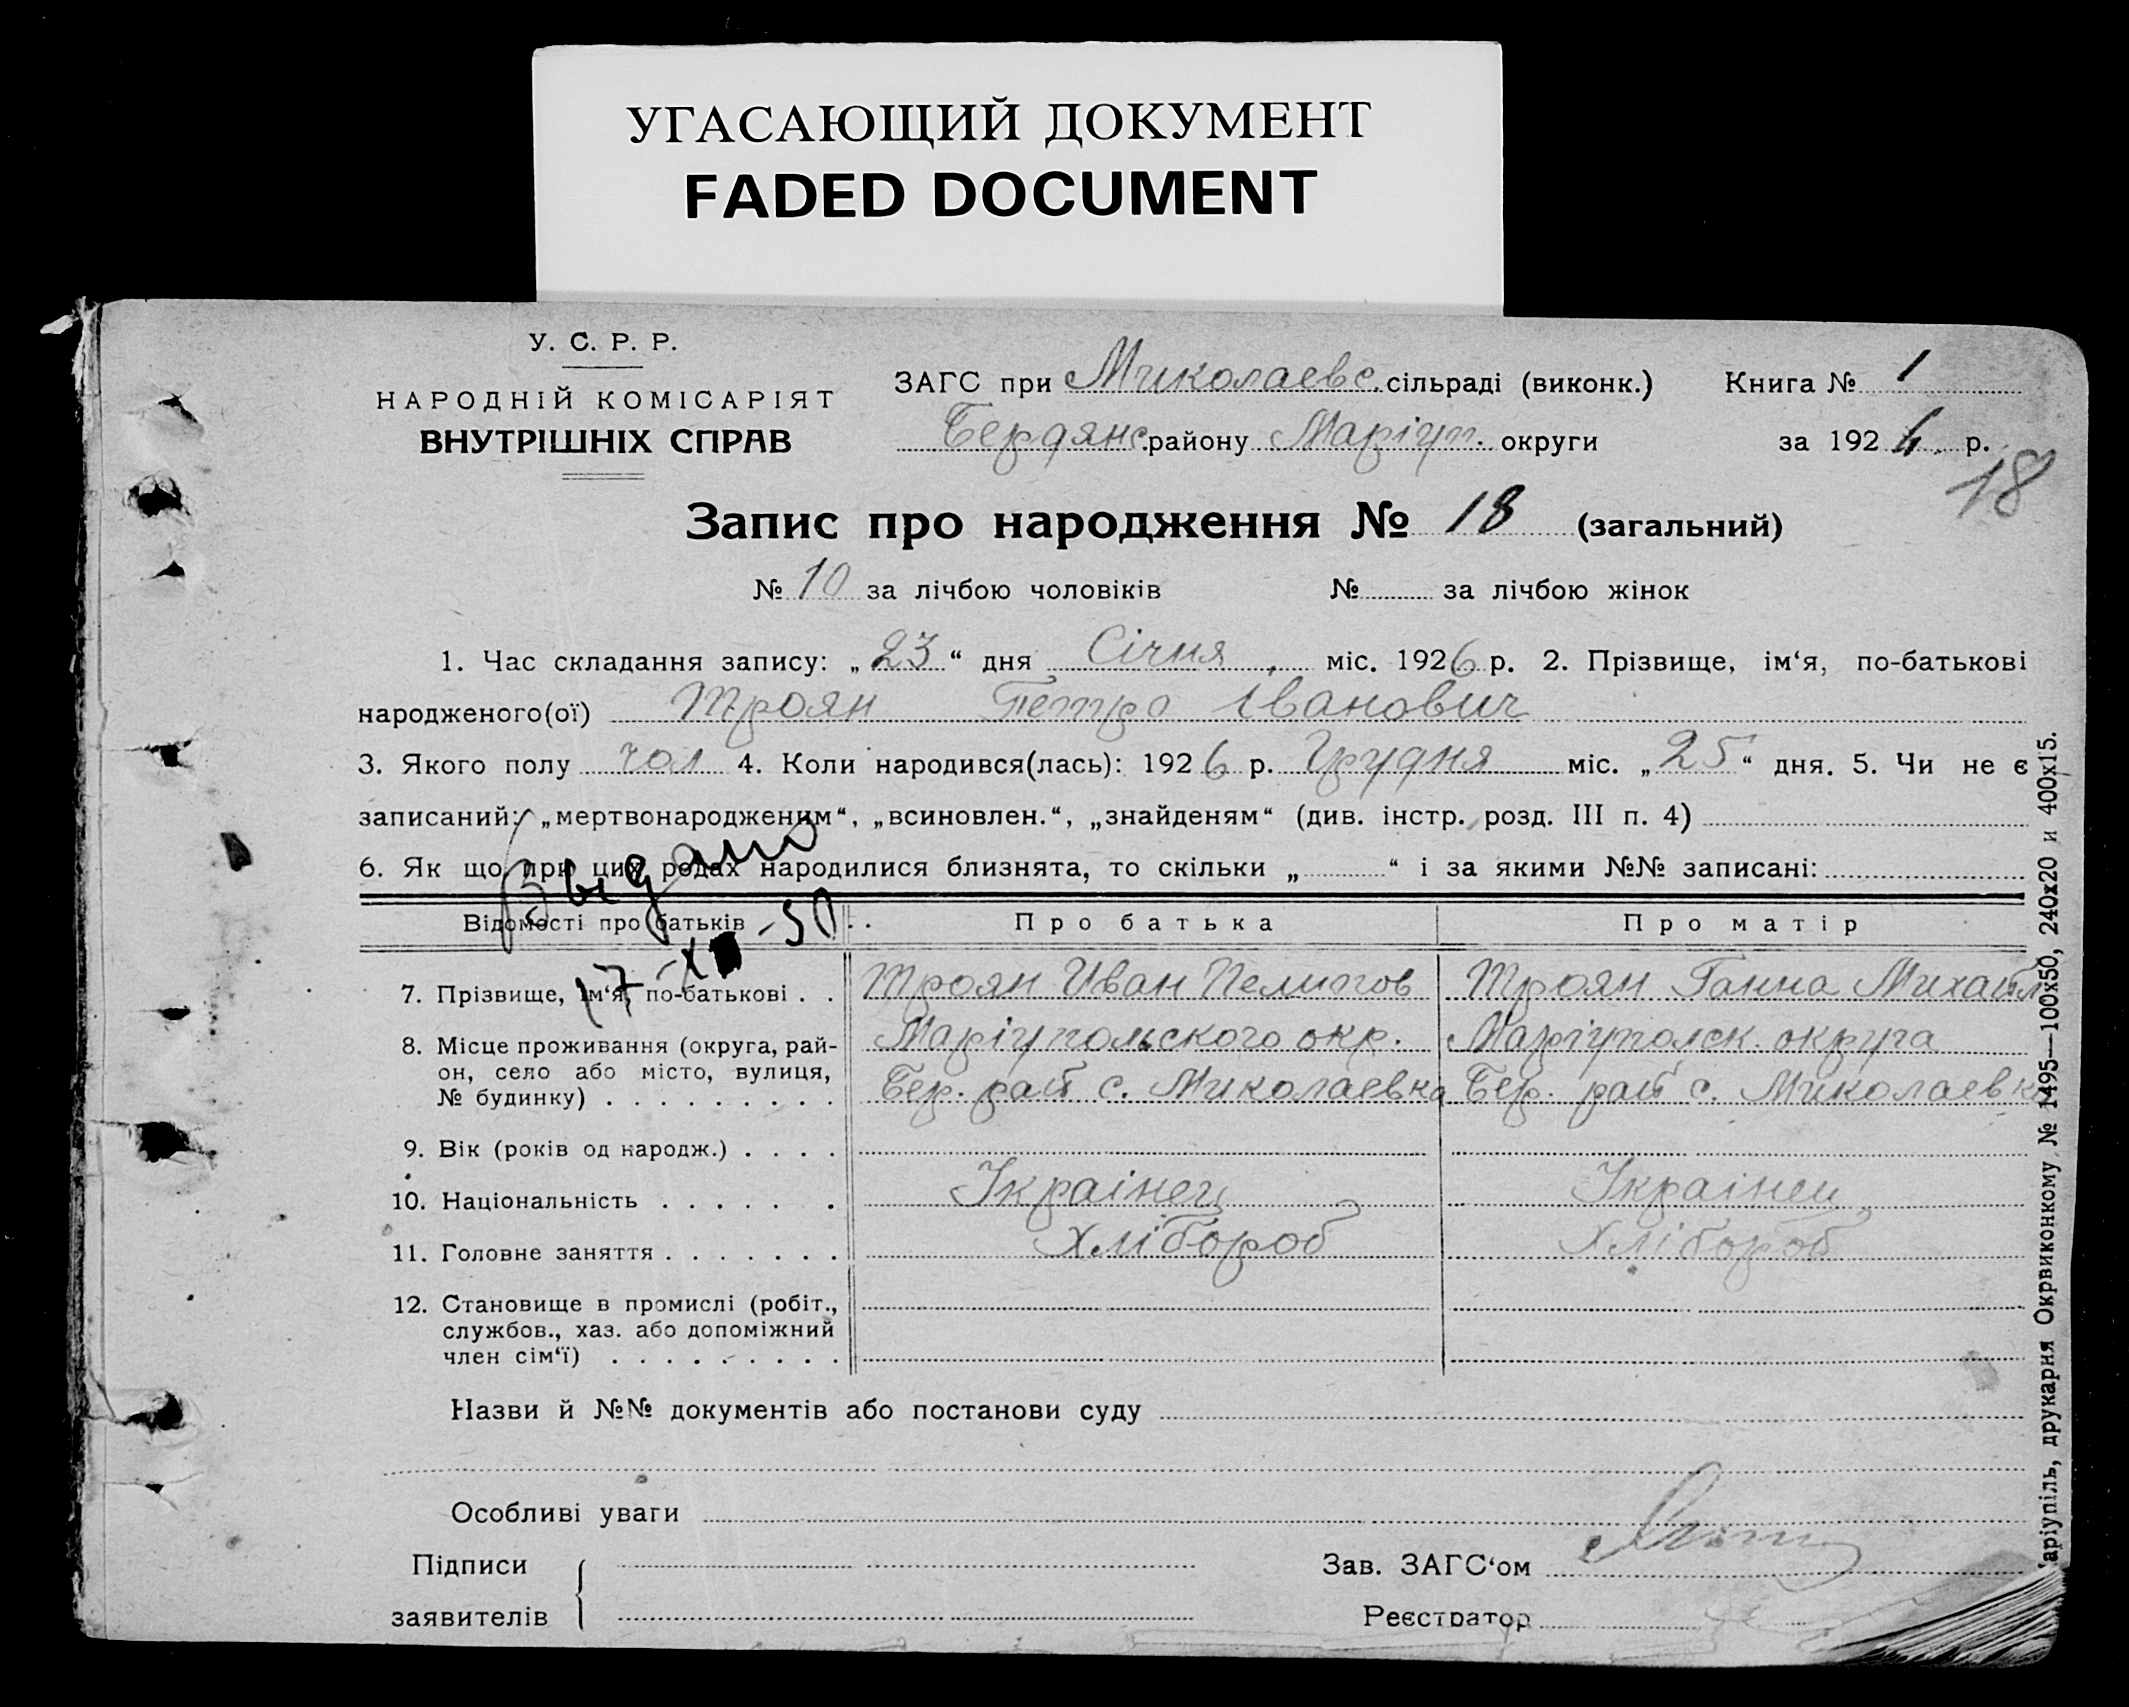 УГАСАЮЩИЙ ДОКУМЕНТ
FADED DOCUMENT
У. С. Р. Р.
НАРОДНІЙ КОМІСАРІЯТ
ВНУТРІШНІХ СПРАВ
ЗАГС при Миколаевс. сільраді (виконк.) Книга № 1
Бердянс. району Маріуп. округи за 1926 р.
18
Запис про народження № 18 (загальний)
№ 10 за лічбою чоловіків № за лічбою жінок
1. Час складання запису: „23“ дня Січня міс. 1926 р. 2. Прізвище, ім‘я, по-батькові
народженого(ої) Троян Петро Іванович
3. Якого полу чол 4. Коли народився(лась): 1926 р. Грудня міс. „25“ дня. 5. Чи не є
записаний: „мертвонародженим“, „всиновлен.“, „знайденям“ (див. інстр. розд. III п. 4)
6. Як що при цих родах народилися близнята, то скільки „ “ і за якими №№ записані:
Выдано
Відомості про батьків Про батька Про матір
7. Прізвище, ім‘я, по-батькові Троян Иван Пелипов Троян Ганна Михайл
8. Місце проживання (округа, рай- Маріупольского окр. Маріуполск. округа
он, село або місто, вулиця, Бер. рай с. Миколаевка Бер. рай с. Миколаевка
№ будинку)
9. Вік (років од народж.)
10. Національність Украінец Украінец
11. Головне заняття Хлібороб Хлібороб
12. Становище в промислі (робіт.,
службов., хаз. або допоміжний
член сім‘ї)
Назви й №№ документів або постанови суду
Особливі уваги
Підписи
заявителів
Зав. ЗАГС‘ом
Реєстратор
аріупіль, друкарня Окрвиконкому № 1495—100х50, 240х20 и 400х15.